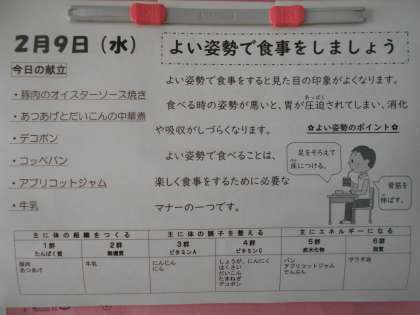 2月9日(水)
よい姿勢で食事をしましょう
今日の献立
・豚肉のオイスターソース焼き
・あつあげとだいこんの中華煮
・デコポン
・コッペパン
・アプリコットジャム
・牛乳
よい姿勢で食事をすると見た目の印象がよくなります。
食べる時の姿勢が悪いと、胃が圧迫されてしまい、消化
や吸収がしづらくなります。
よい姿勢で食べることは、
楽しく食事をするために必要な
マナーの一つです。
✿よい姿勢のポイント✿
足をそろえて
床につける。
背筋を
伸ばす。
主に体の組織をつくる 主に体の調子を整える 主にエネルギーになる
1群 2群 3群 4群 5群 6群
たんぱく質 無機質 ビタミンA ビタミンC 炭水化物 脂質
豚肉 牛乳 にんじん しょうが、にんにく パン サラダ油
あつあげ にら はくさい アプリコットジャム
だいこん でんぷん
たまねぎ
デコポン